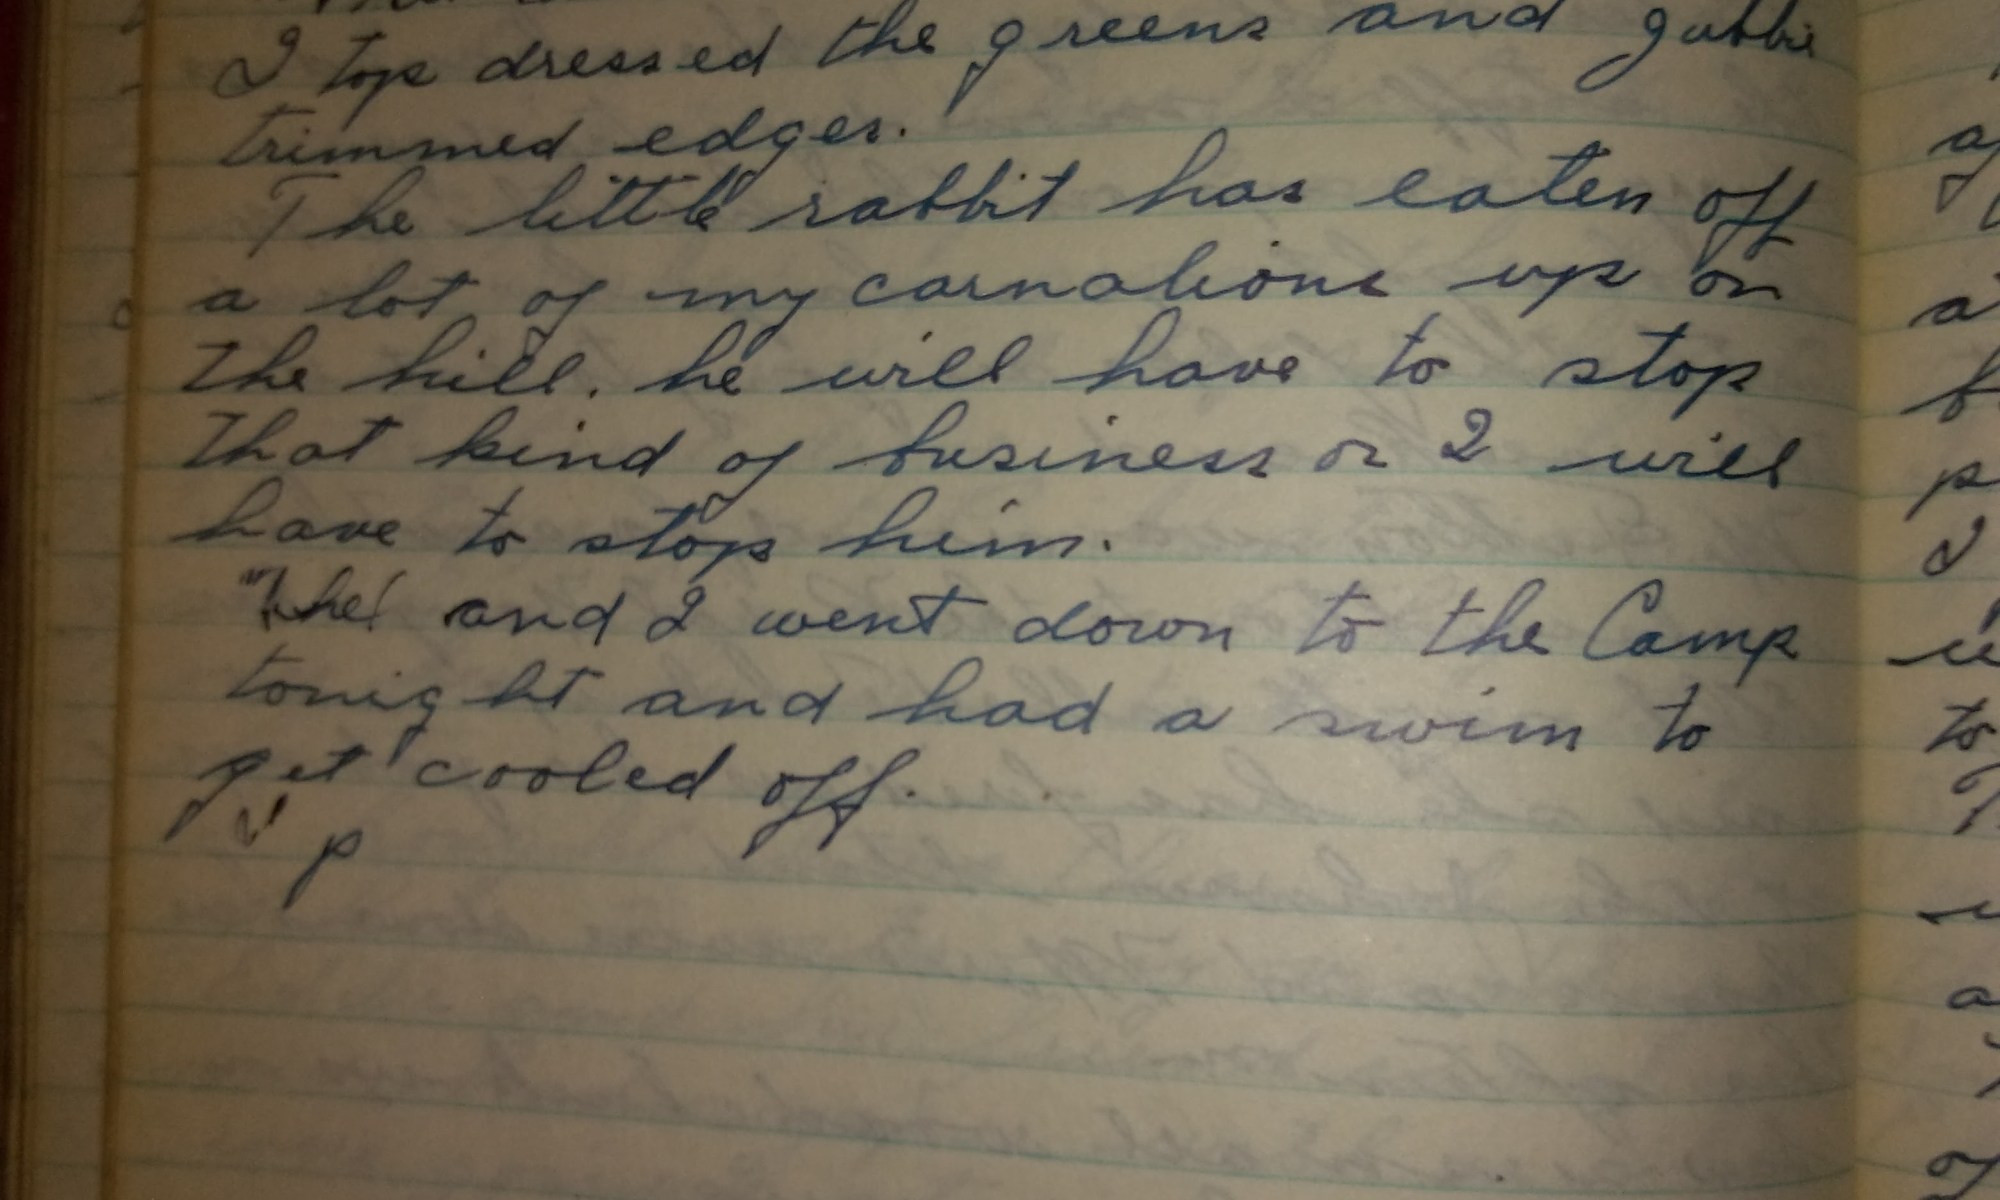 I top dressed the greens and
trimmed edges.
The little rabbit has eaten off
a lot of my carnations up on
the hill. he will have to stop
that kind of business or I will
have to stop him.
and I went down to the Camp
tonight and had a swim to
get cooled off.